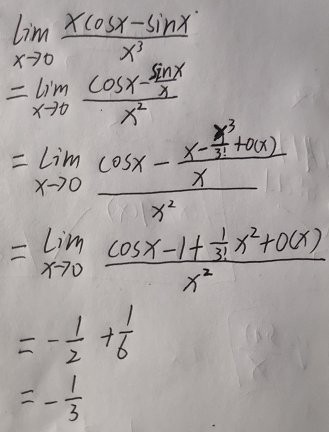 lim x→0 (xcosx-sinx)/x³
= lim x→0 (cosx - sinx/x)/x²
= lim x→0 (cosx - (x - x³/3! + o(x))/x)/x²
= lim x→0 (cosx - 1 + 1/3! x² + o(x))/x²
= -1/2 + 1/6
= -1/3